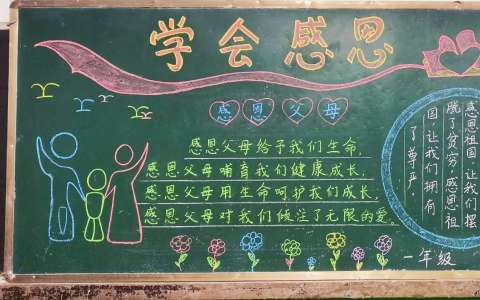 学会感恩
感恩父母
感恩父母给予我们生命，
感恩父母哺育我们健康成长，
感恩父母用生命呵护我们成长，
感恩父母对我们倾注了无限的爱。
感恩祖国，让我们摆
脱了贫穷，感恩祖
国，让我们拥有
了尊严，
一年级